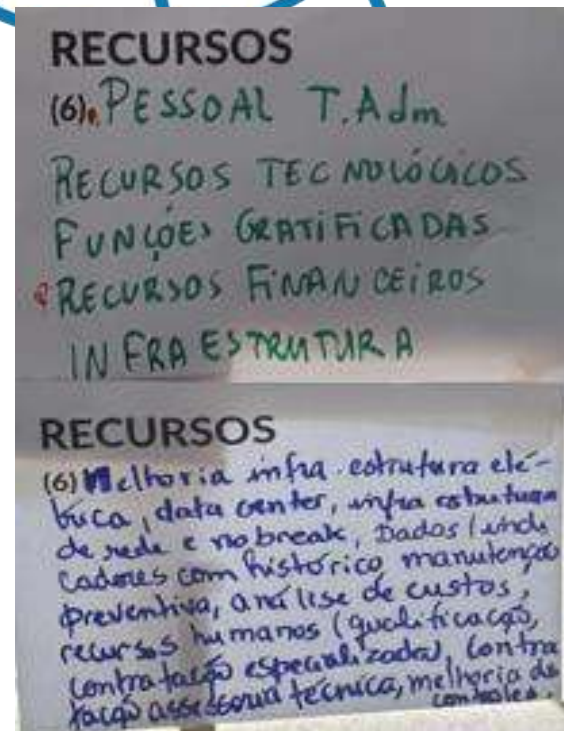 RECURSOS
(6). PESSOAL T.Adm
RECURSOS TECNOLÓGICOS
FUNÇÕES GRATIFICADAS
RECURSOS FINANCEIROS
INFRA ESTRUTURA
RECURSOS
(6) Melhoria infra estrutura elé-
trica, data center, infra estrutura
de rede e nobreak, Dados/indi
cadores com histórico, manutenção
preventiva, análise de custos,
recursos humanos (qualificação,
contratação especializada), contra
tação assessoria técnica, melhoria de
controles.